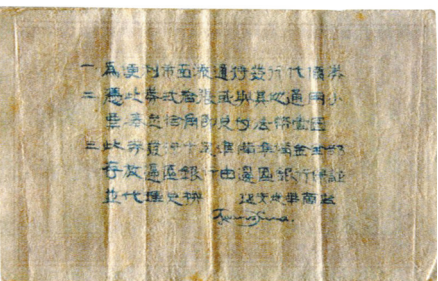 一 為便利市面流通特發行代價券
二 憑此券式拾張或取其他通用小
票湊足拾角即兌付法幣壹圓
三 此券發行十足準備基金全部
存放邊區銀行由邊區銀行保証
並代理兌換 光華商店